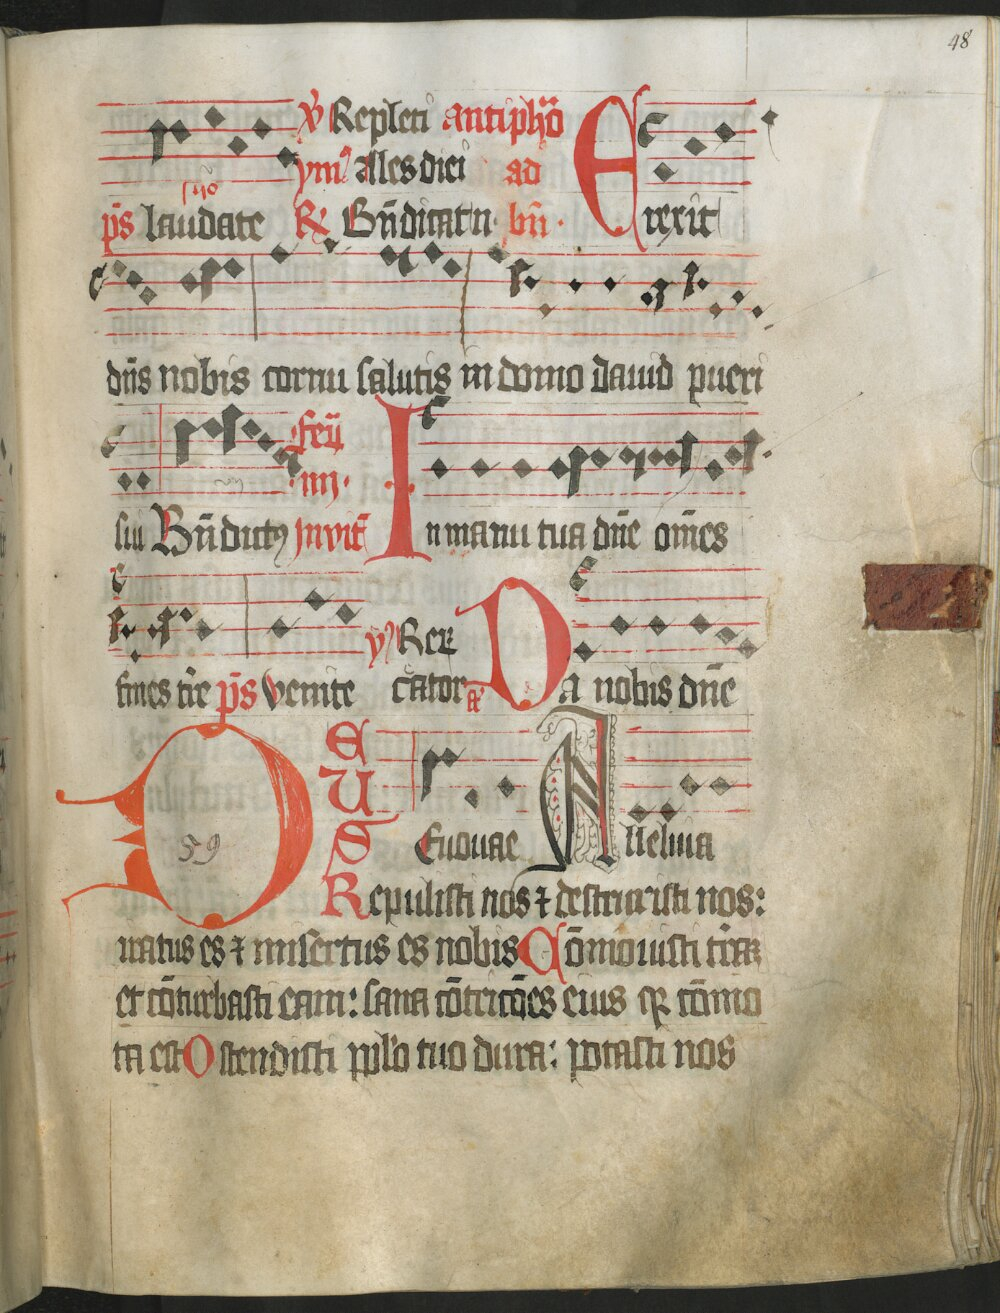 48
℣ Repleti antipho
ymº Ales diei ad
p̄s laudate ℟ Bn̄dicat n̄ bn̄· Erexit
dn̄s nobis cornu salutis in domo dauid pueri
feȓ
iiij·
sui Bn̄dictꝰ Jnvit̄ In manu tua dn̄e om̄es
℣ Rex
fines tr̄e p̄s venite Da nobis dn̄e
59
DEUS
Euouae Alleluia
Repulisti nos ⁊ destruxisti nos:
iratus es ⁊ misertus es nobis Cōmouisti tr̄aꝫ
et cōturbasti eam: sana cōtricōes eius qꝛ cōmo
ta est Ostendisti pplo tuo dura: potasti nos